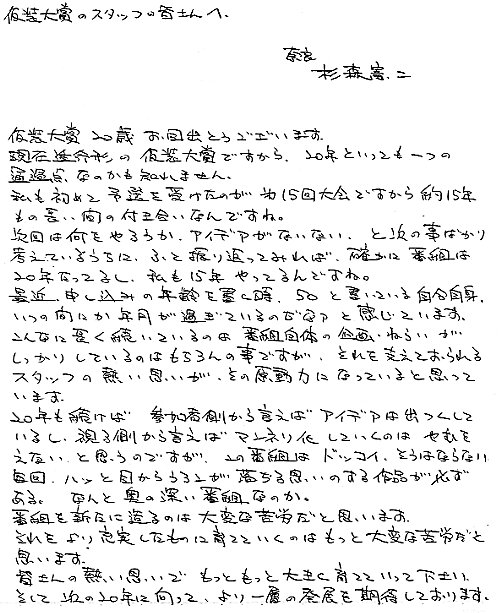 仮装大賞のスタッフの皆さんへ.
奈良
杉森憲二
仮装大賞20歳 お目出とうございます.
現在進行形の 仮装大賞ですから、20年といっても一つの
通過点なのかも知れません.
私も初めて予選を受けたのが 第15回大会ですから約15年
もの長い間の付き合いなんですね.
次回は何をやろうか、アイデアがないない、と次の事ばかり
考えているうちに、ふと振り返ってみれば、確かに番組は
20年たってるし、私も15年 やってるんですね.
最近、申し込みの年齢を書く時、50と書いている自分自身、
いつの間にか年月が過ぎているのだなァと感じています.
こんなに長く続いているのは 番組自体の企画、ねらいが
しっかりしているのはもちろんの事ですが、それを支えておられる
スタッフの熱い思いが、その原動力になっていると思って
います.
20年も続けば 参加者側から言えばアイデアは出つくして
いるし、視る側から言えば マンネリ化していくのは やむを
えない、と思うのですが、この番組は ドッコイ、そうはならない
毎回、ハッと目からうろこが 落ちる思いのする作品が必ず
ある. なんと奥の深い番組なのか.
番組を新たに造るのは 大変な苦労だと思います.
それを より充実したものに育てていくのはもっと大変な苦労だと
思います.
皆さんの熱い思いで もっともっと大きく育てていって下さい.
そして 次の20年に向って、より一層の発展を期待しております.